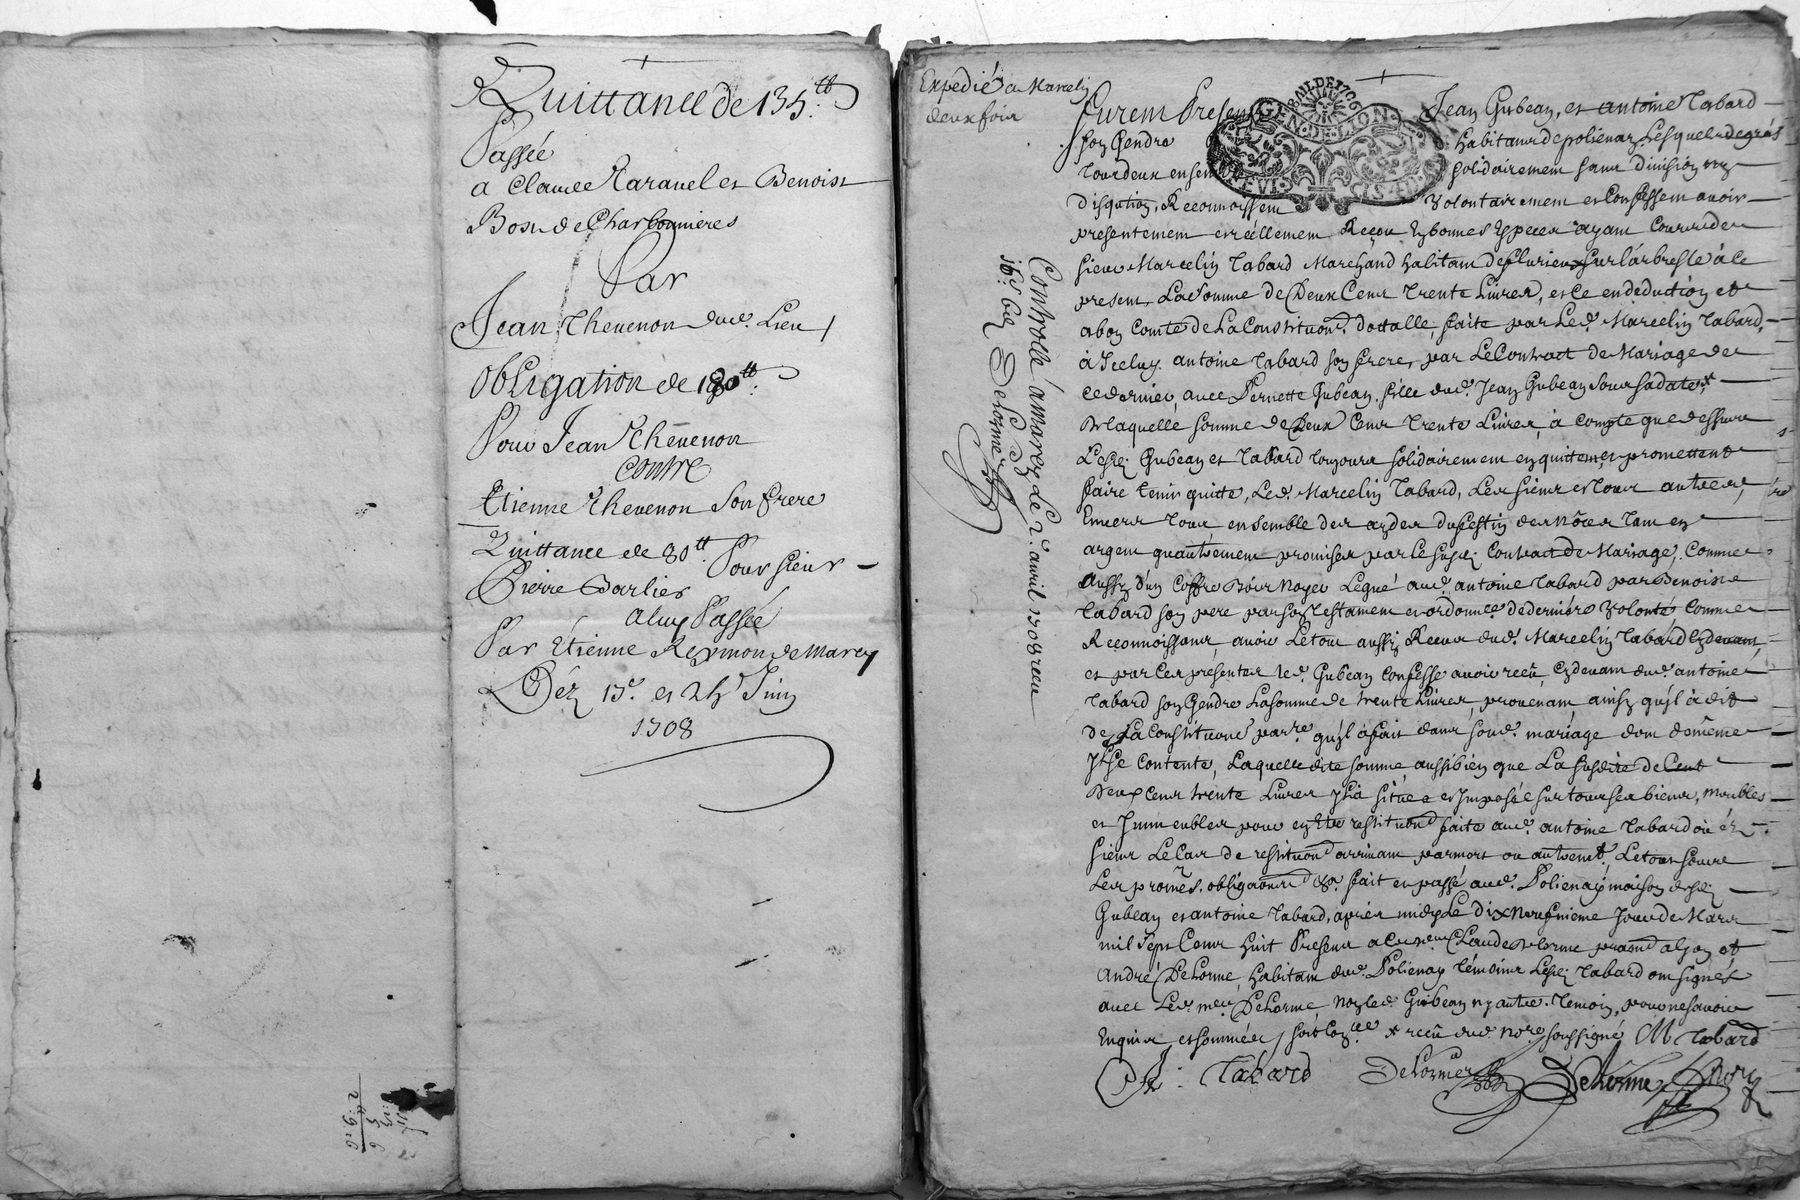 Quittance de 135.tt
Passée
a Claude Raravel et Benoist
Bost de Charbonnieres
Par
Jean Thevenon dud. Lieu
Obligation de 180tt.
Pour Jean Thevenon
Contre
Etienne Thevenon Son frere
Quittance de 80tt. Pour sieur
Pierre Barlier
a luy Passée
Par Etienne Reymon de Marcy
Déz 15e. et 24e Juin
1708
Expedié a Marcelin
deux fois
GEN. DE LION
Furem Presens Jean Gubean, et antoine Tabard
son Gendre habitans de polienay Lesquels de grés
Tour deux ensemble solidairement sans division ny
disqution, Reconnoissent volontairement et Confessent avoir
presentement et réellement Reçeu En bonnes Especes ayant Cours de
sieur Marcelin Tabard Marchand habitant de fleurieux sur l'arbresle à ce
present, La somme de Deux Cens Trente Livres, et ce en deduction et
a bon Comte de La Constituon. dottalle faite par Led. Marcelin Tabard,
à Iceluy antoine Tabard son frere, par Le Contract de Mariage de
ce dernier, avec Pernette Gubean, fille dud. Jean Gubean sous sa datte,
De laquelle somme de Deux Cens Trente Livres, à compte que dessus
Lesd. Gubean et Tabard Toujours solidairement en quittent, et promettent
faire tenir quitte, Led. Marcelin Tabard, Les siens et tous autres,
Envers Tous ensemble des aydes du festin des nôces Tant en
argent qu'autrement promises par le susd. Contract de Mariage, Comme
Aussy d'un Coffre Bois Noyer Legué aud. antoine Tabard par Benoist
Tabard son pere par son Testament et ordonnce de derniére Volonté Comme
Reconnoissans, avoir Le tout aussy Receu dud. Marcelin Tabard Cy devant,
et par Ces presentes led. Gubean Confesse avoir reçû, Cy devant dud. antoine
Tabard son Gendre La somme de trente Livres, provenant, ainsy qu'il à dit
de La Constituone parre. qu'il à fait dans sond. mariage dont de même
Il se Contente, Laquelle dite somme, aussi bien que La susdite de Cent
Deux Cens trente Livres Il à située et Imposée sur tous ses biens, meubles
et Immeubles pour en Etre restituon. faite aud. antoine Tabard ou és
siens Le Cas de restituon. arrivant par mort ou autremt. Le tout sous
Les promes. obligaons. &a. fait et passé aud. Polienay maison desd.
Gubean et antoine Tabard, apres midy Le dix Neufvieme Jour de Mars
mil sept Cens huit Presens a Ce Claude Delorme et
André Delorme, habitant dud. Polienay Témoins Lesd. Tabard ont signés
avec Led. Delorme, Non led. Gubean ny autre Temoin, pour ne savoir
Enquis et sommés reçû dud. Nore. soussigné M Tabard
A: Tabard Delorme Delorme Nore
Controllé a marcy Le 2e. avril 1708 receu
Delorme